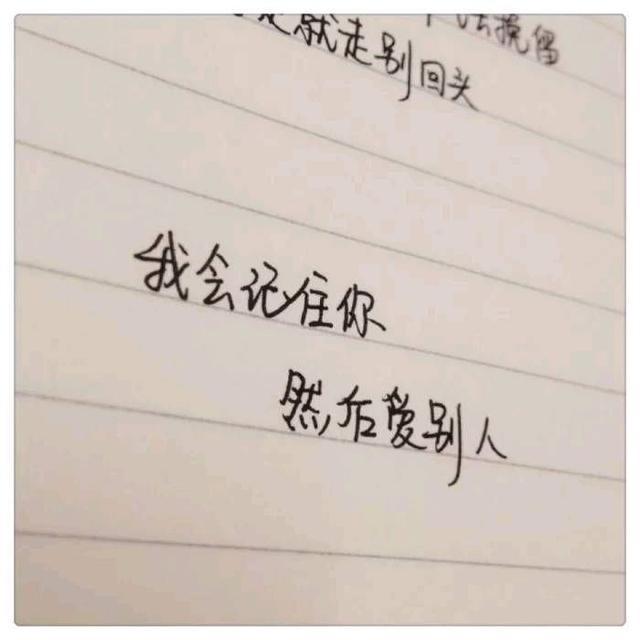 法挽留
就走别回头
我会记住你
然后爱别人